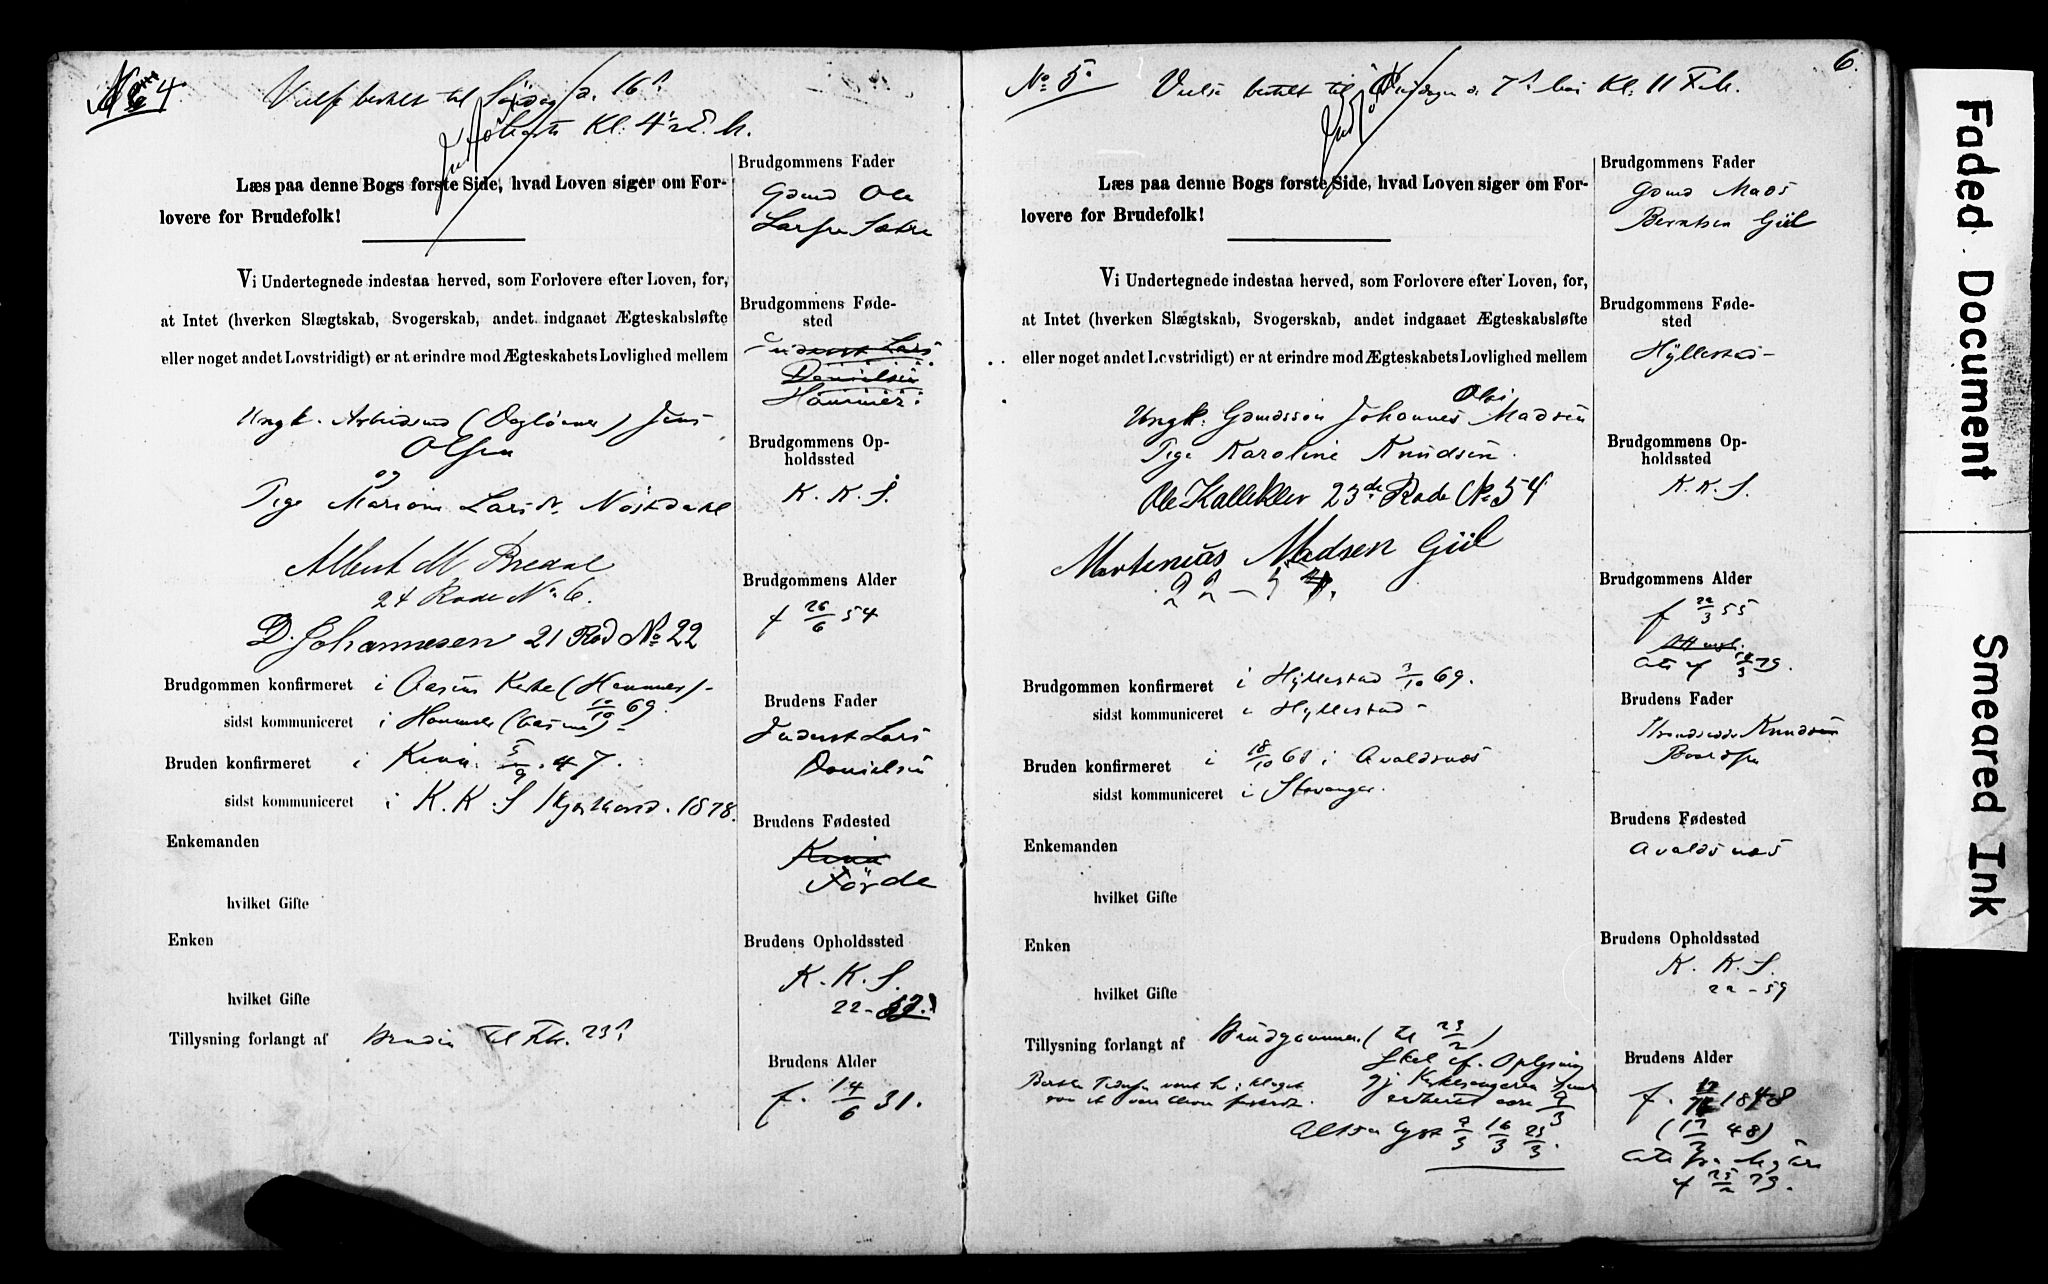 No 4
til Søndag d. 16
Kl: 4
Læs paa denne Bogs første Side, hvad Loven siger om For-
lovere for Brudefolk!
Vi Undertegnede indestaa herved, som Forlovere efter Loven, for,
at Intet (hverken Slægtskab, Svogerskab, andet indgaaet Ægteskabsløfte
eller noget andet Lovstridigt) er at erindre mod Ægteskabets Lovlighed mellem
Ungk. Arbeidsmd (Dagløner) Jens
Olsen
og
Pige Larsdr Nøstdahl
Albert M Bredal
24 Rode No 6.
D. Johannesen 21 Rod No 22
Brudgommen konfirmeret i Kirke (Hammer)
sidst kommuniceret i Hammer 69
Bruden konfirmeret i Kinn 5/9 47.
sidst kommuniceret i K. K. S 1878.
Enkemanden
hvilket Gifte
Enken
hvilket Gifte
Tillysning forlangt af Bruden til Febr. 23
Brudgommens Fader
Gbmd Ole
Brudgommens Føde-
sted
Inderst Lars
Danielsen
Hammer
Brudgommens Op-
holdssted
K. K. S.
Brudgommens Alder
f 26/6 54
Brudens Fader
Inderst Lars
Danielsen
Brudens Fødested
Kinn
Førde
Brudens Opholdssted
K. K. S.
22-
Brudens Alder
f. 14/6 31.
6.
No 5
Vielse bestilt til d. 7 Kl: 11 F.
Læs paa denne Bogs første Side, hvad Loven siger om For-
lovere for Brudefolk!
Vi Undertegnede indestaa herved, som Forlovere efter Loven, for,
at Intet (hverken Slægtskab, Svogerskab, andet indgaaet Ægteskabsløfte
eller noget andet Lovstridigt) er at erindre mod Ægteskabets Lovlighed mellem
Ungk. Gbmdssøn Johannes Madsen
Pige Karoline Knudsen.
Ole Kalleklev 23de Rode No 54
Martinius Madsen Giil
22-54.
Brudgommen konfirmeret i Hyllestad 3/10 69.
sidst kommuniceret i Hyllestad
Bruden konfirmeret i 18/10 68 i Avaldsnæs
sidst kommuniceret i Stavanger.
Enkemanden
hvilket Gifte
Enken
hvilket Gifte
Tillysning forlangt af Brudgommen (til 23/2)
Skal Oplysning
9/3
Altsaa lyst 9/3 16/3 23/3.
Brudgommens Fader
Gbmd Mads
Berntsen Giil
Brudgommens Føde-
sted
Hyllestad
Brudgommens Op-
holdssted
K. K. S.
Brudgommens Alder
f 22/3 55
79.
Brudens Fader
Strandsidder Knud
Brudens Fødested
Avaldsnæs
Brudens Opholdssted
K. K. S.
22-59
Brudens Alder
f. 1848
48)
79.
Faded Document
Smeared Ink